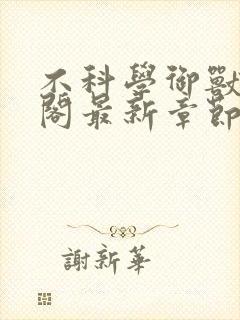 不科學御獸
閣最新章節
謝新華